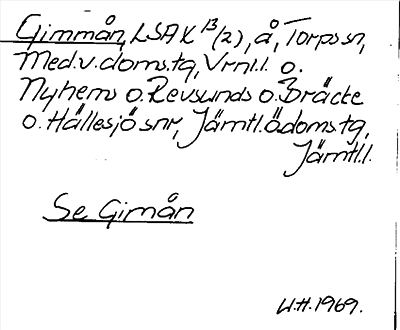 Gimmån, LSA K 13/(2), å, Torps sn,
Med.v.doms.tg, Vrnl.l. o.
Nyhems o. Revsunds o. Bräcke
o. Hällesjö snr, Jämtl.ö.doms.tg,
Jämtl.l.
Se Gimån
U.H. 1969.